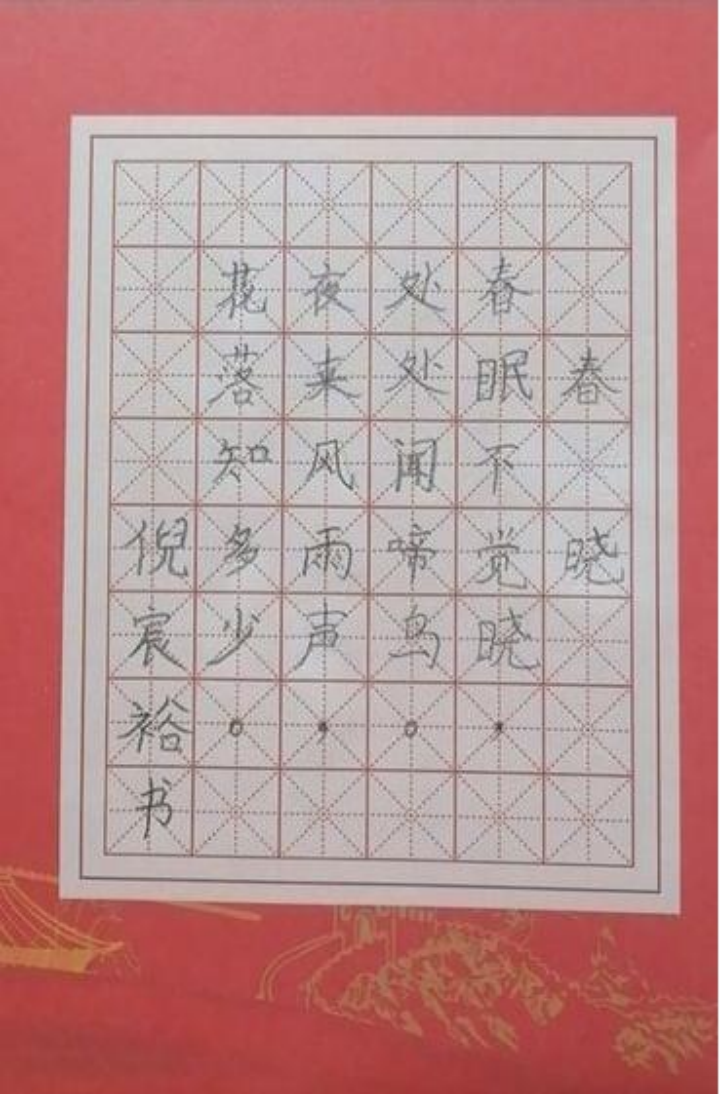 春晓
春眠不觉晓，
处处闻啼鸟。
夜来风雨声，
花落知多少。
倪宸裕书